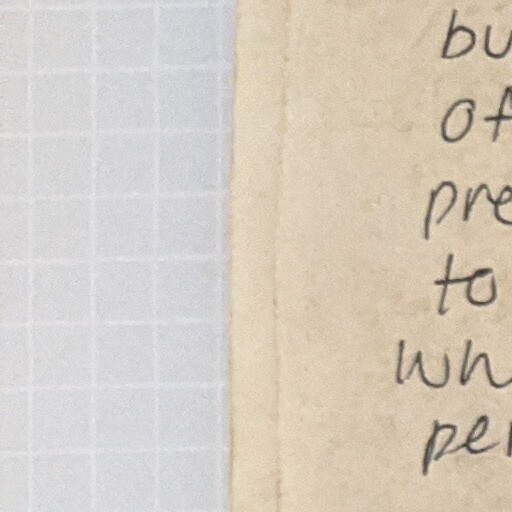 bu
of
pre
to
wh
per